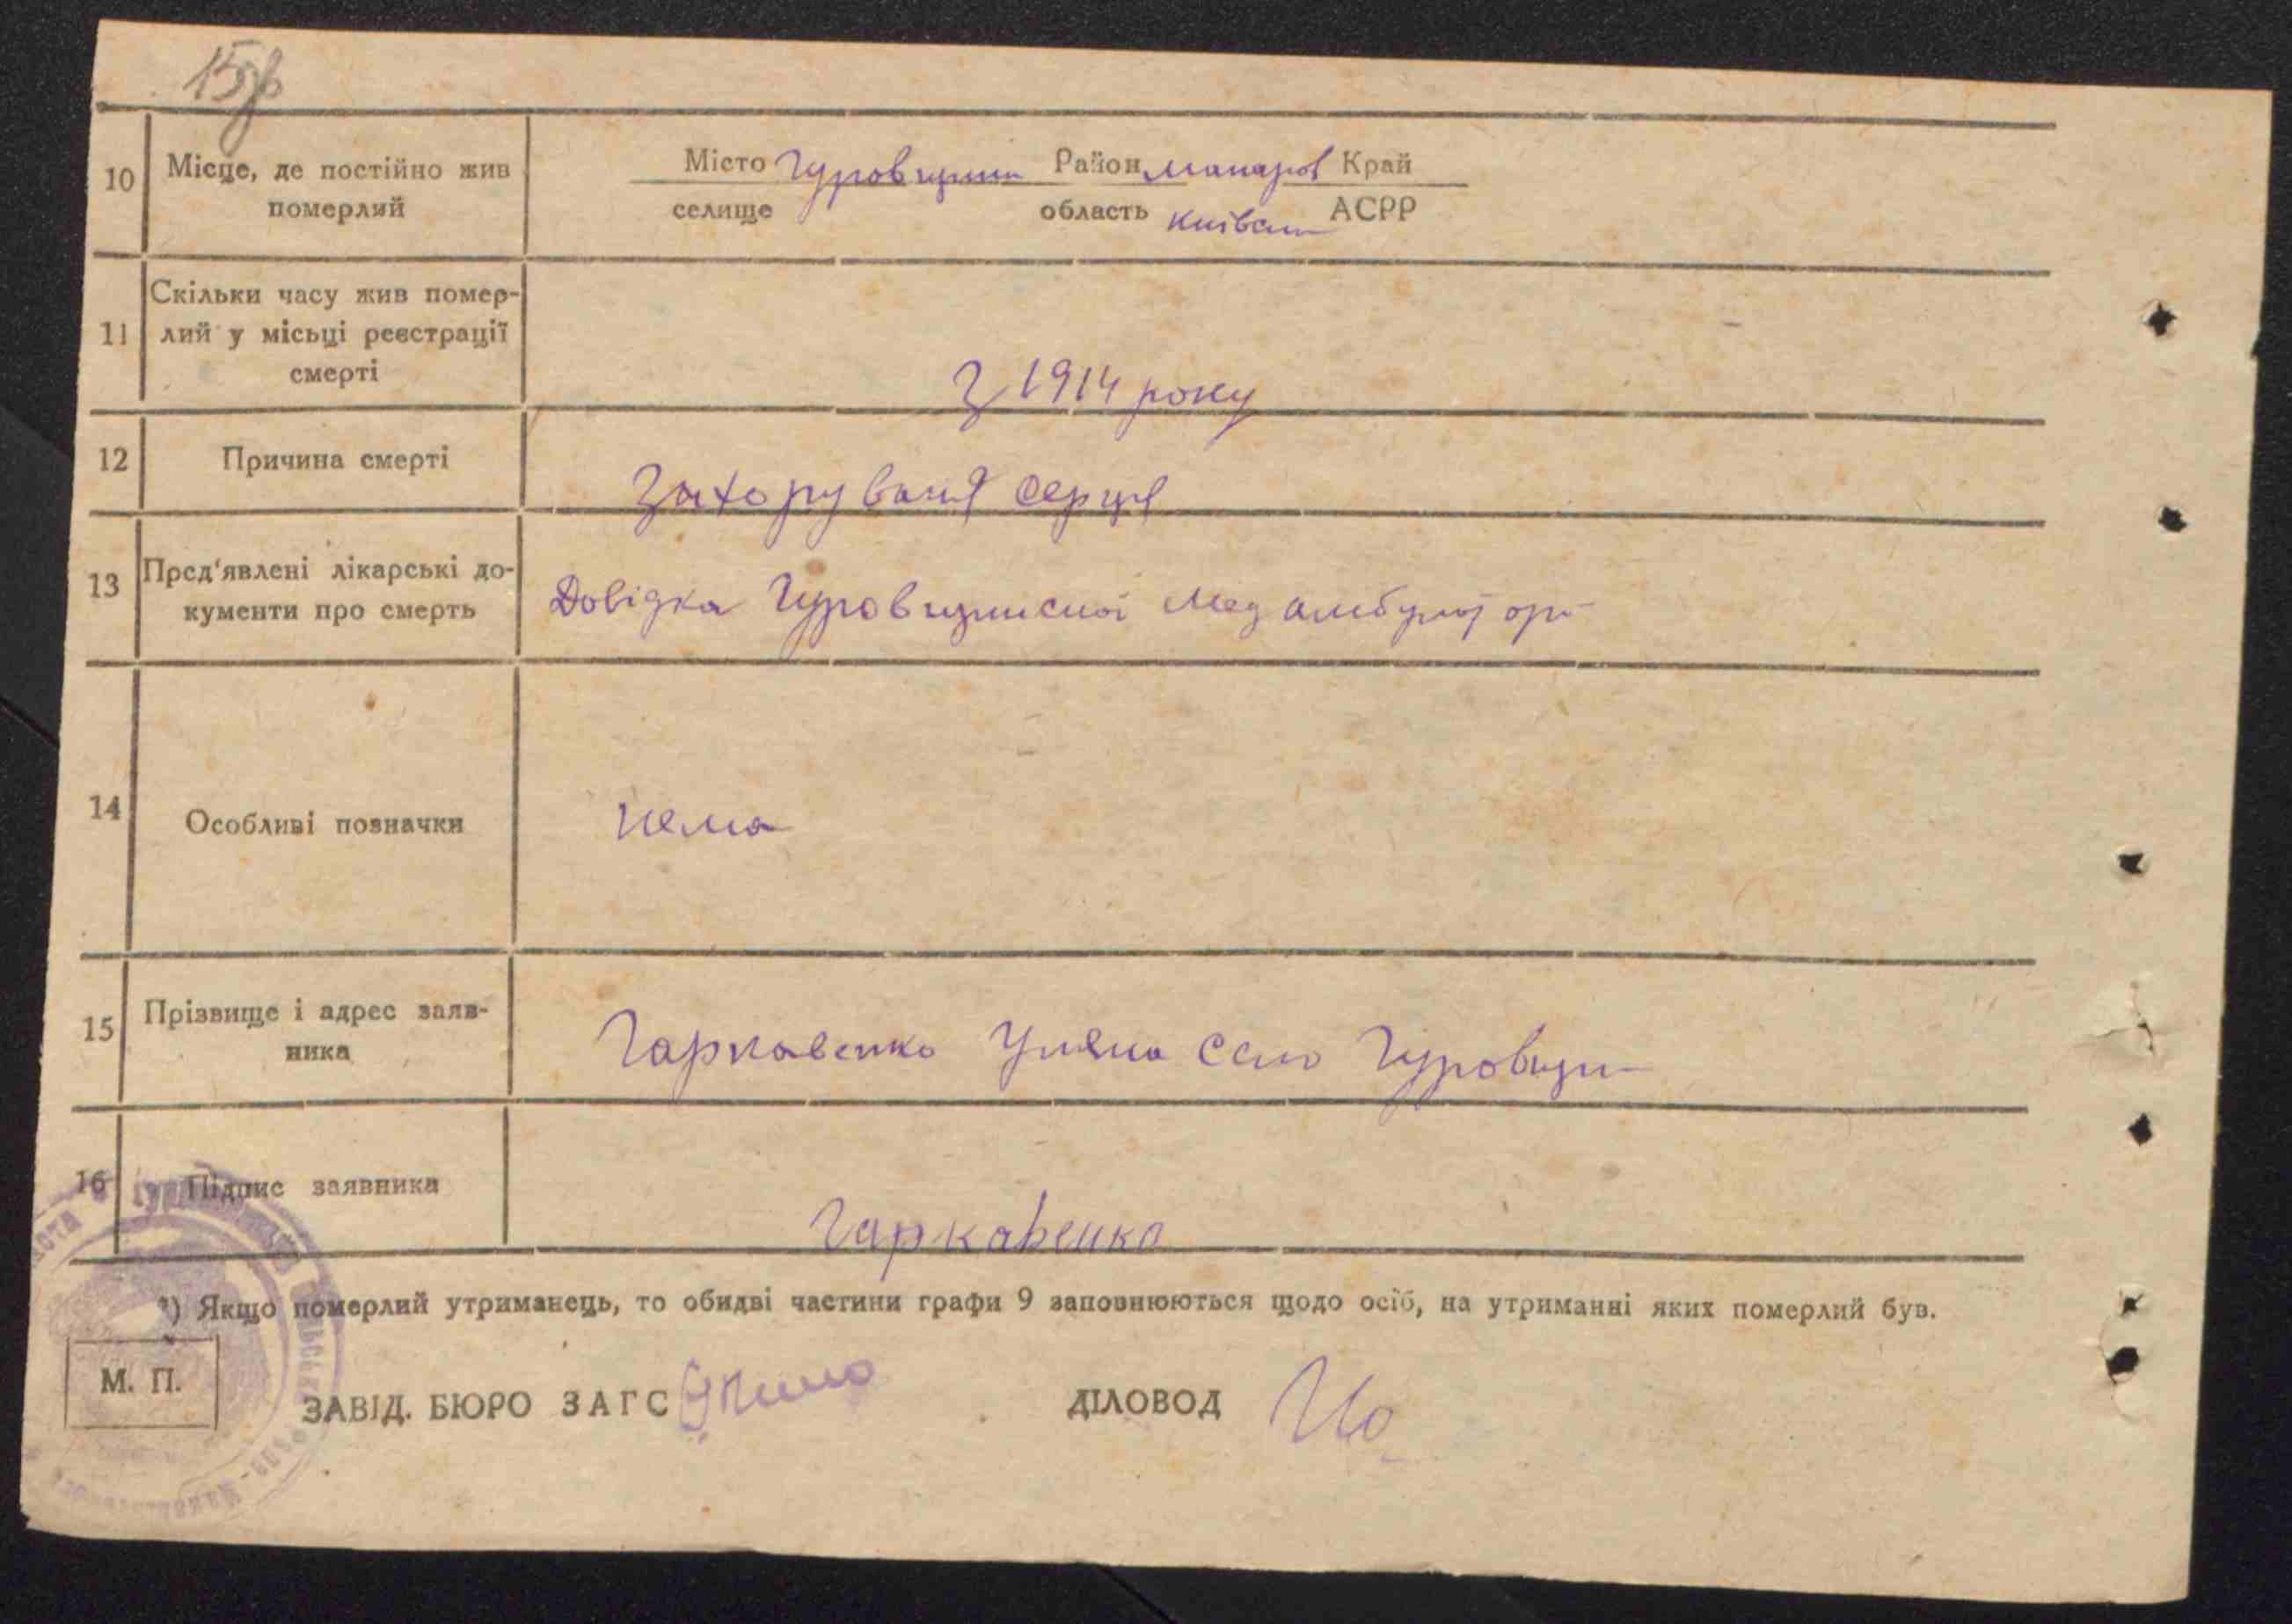 10 Місце, де постійно жив
померлий
Місто Гуровщина Район макарів Край
селище область Київська АСРР
11 Скільки часу жив помер-
лий у місьці реєстрації
смерті
З 1914 року
12 Причина смерті
Захорування серця
13 Пред'явлені лікарські до-
кументи про смерть
Довідка Гуровщинської мед амбулаторії
14 Особливі позначки
нема
15 Прізвище і адрес заяв-
ника
Гаркавенко Уляна село Гуровщина
16 Підпис заявника
Гаркавенко
*) Якщо померлий утриманець, то обидві частини графи 9 заповнюються щодо осіб, на утриманні яких померлий був.
М. П.
ЗАВІД. БЮРО ЗАГС
ДІЛОВОД